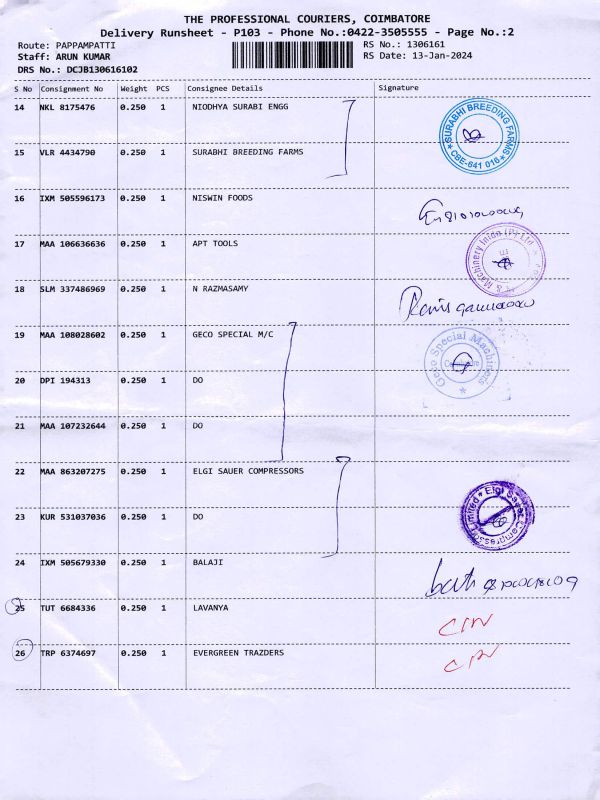 THE PROFESSIONAL COURIERS, COIMBATORE
Delivery Runsheet - P103 - Phone No.:0422-3505555 - Page No.:2
Route: PAPPAMPATTI
RS No.: 1306161
Staff: ARUN KUMAR
RS Date: 13-Jan-2024
DRS No.: DCJB130616102
S No Consignment No Weight PCS Consignee Details Signature
14 NKL 8175476 0.250 1 NIODHYA SURABI ENGG
SURABHI BREEDING FARMS
CBE-641 016
15 VLR 4434790 0.250 1 SURABHI BREEDING FARMS
16 IXM 505596173 0.250 1 NISWIN FOODS
17 MAA 106636636 0.250 1 APT TOOLS
18 SLM 337486969 0.250 1 N RAZMASAMY
19 MAA 108028602 0.250 1 GECO SPECIAL M/C
Geco Special Machines
20 DPI 194313 0.250 1 DO
21 MAA 107232644 0.250 1 DO
22 MAA 863207275 0.250 1 ELGI SAUER COMPRESSORS
Elgi Sauer Compressors Limited
23 KUR 531037036 0.250 1 DO
24 IXM 505679330 0.250 1 BALAJI
25 TUT 6684336 0.250 1 LAVANYA
26 TRP 6374697 0.250 1 EVERGREEN TRAZDERS